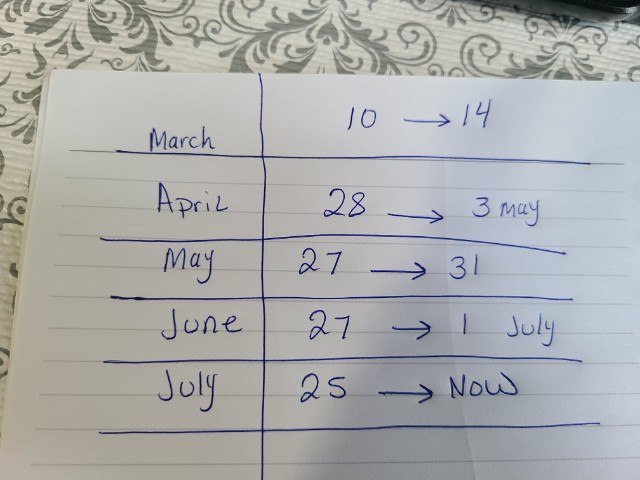 March 10 → 14
April 28 → 3 may
May 27 → 31
June 27 → 1 July
July 25 → NOW